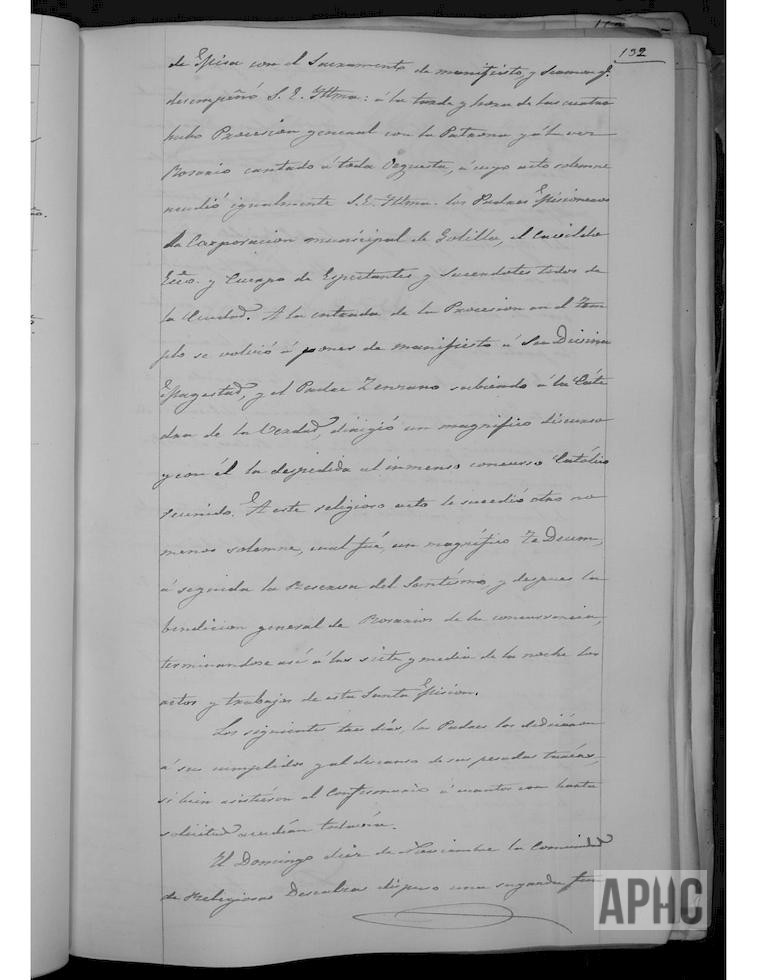 132
de Misa con el Sacramento de manifiesto, y Sermon q.
desempeñó S. E. Iltma: á la tarde y hora de las cuatro
hubo Procesion general con la Patrona y á la vez
Rosario cantado á toda Orquesta, á cuyo acto solemne
acudió igualmente S. E. Iltma. los Padres Misioneros
la Corporacion municipal de Golilla, el Cavildo
Ecco. y Cuerpo de Espectantes y Sacerdotes todos de
la Ciudad. A la entrada de la Procesion en el Tem
plo se volvió á poner de manifiesto á Su Divina
Magestad, y el Padre Zenzano subiendo á la Cáte
dra de la Verdad, dirigió un magnifico discurso
y con él la despedida al inmenso concurso Católico
reunido. A este religioso acto le sucedió otro no
menos solemne, cual fué, un magnífico Te Deum,
á seguida la Reserva del Santísimo, y despues la
bendicion general de Rosarios de la concurrencia,
terminandose así á las siete y media de la noche los
actos y trabajos de esta Santa Mision.
Los siguientes tres dias, los Padres los dedicaron
á sus cumplidos y al descanso de sus pesadas tareas,
si bien asistieron al Confesonario á cuantos con harta
solicitud acudían todavía.
El Domingo diez de Noviembre la Comunidad
de Religiosas Descalzas dispuso una segunda fun
APHC